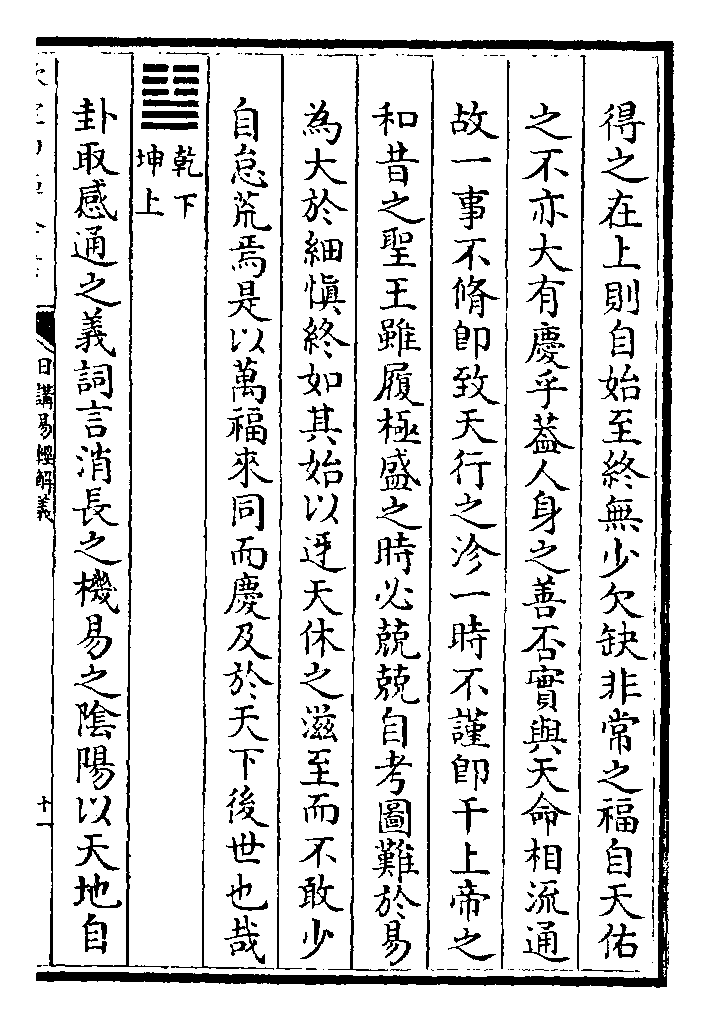 得之在上則自始至終無少欠缺非常之福自天佑
之不亦大有慶乎葢人身之善否實與天命相流通
故一事不脩卽致天行之沴一時不謹卽干上帝之
和昔之聖王雖履極盛之時必兢兢自考圖難於易
為大於細慎終如其始以迓天休之滋至而不敢少
自怠荒焉是以萬福來同而慶及於天下後世也哉
乾下
坤上
卦取感通之義詞言消長之機易之隂陽以天地自
日講易經解義
十一